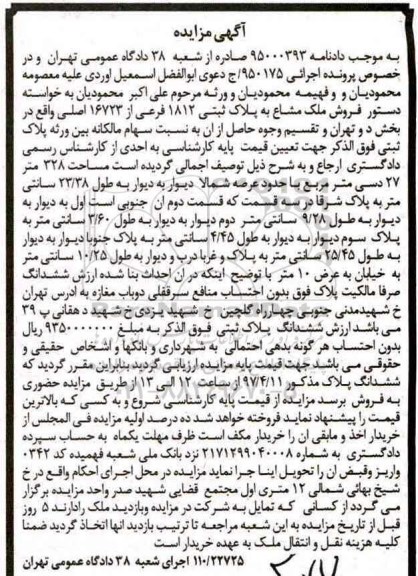 آگهی مزایده
به موجب دادنامه ۹۵۰۰۰۳۹۳ صادره از شعبه ۳۸ دادگاه عمومی تهران و در
خصوص پرونده اجرائی ۹۵۰۱۷۵/ج دعوی ابوالفضل اسمعیل اوردی علیه معصومه
محمودیان و و فهیمه محمودیان و ورثه مرحوم علی اکبر محمودیان به خواسته
دستور فروش ملک مشاع به پلاک ثبتی ۱۸۱۲ فرعی از ۱۶۷۲۳ اصلی واقع در
بخش د و تهران و تقسیم وجوه حاصل از ان به نسبت سهام مالکانه بین ورثه پلاک
ثبتی فوق الذکر جهت تعیین قیمت پایه کارشناسی به احدی از کارشناس رسمی
دادگستری ارجاع و به شرح ذیل توصیف اجمالی گردیده است مساحت ۳۲۸ متر
۲۷ دسی متر مربع با حدود عرصه شمالا دیوار به دیوار به طول ۲۳/۳۸ سانتی
متر به پلاک شرقا در سه قسمت که قسمت دوم ان جنوبی است اول به دیوار به
دیوار به طول ۹/۲۸ سانتی متر دوم دیوار به دیوار به طول ۳/۶۰ سانتی متر به
پلاک سوم دیوار به دیوار به طول ۴/۴۵ سانتی متر به پلاک جنوبا دیوار به دیوار
به طول ۲۵/۴۵ سانتی متر به پلاک و غربا درب و دیوار به طول ۱۰/۲۵ سانتی متر
به خیابان به عرض ۱۰ متر با توضیح اینکه در ان احداث بنا شده ارزش ششدانگ
صرفا مالکیت پلاک فوق بدون احتساب منافع سرقفلی دوباب مغازه به ادرس تهران
خ شهیدمدنی جنوبی چهارراه گلچین خ شهید یزدی خ شهید دهقانی پ ۳۹
می باشد ارزش ششدانگ پلاک ثبتی فوق الذکر به مبلغ ۹۳۵۰۰۰۰۰۰۰۰ ریال
بدون احتساب هر گونه بدهی احتمالی به شهرداری و بانکها و اشخاص حقیقی و
حقوقی می باشد جهت قیمت پایه مزایده ارزیابی گردید بنابراین مقرر گردید که
ششدانگ پلاک مذکور ۹۷/۴/۱۱ از ساعت ۱۲ الی ۱۳ از طریق مزایده حضوری
به فروش برسد مزایده از قیمت پایه کارشناسی شروع و به کسی که بالاترین
قیمت را پیشنهاد نماید فروخته خواهد شد ده درصد اولیه مزایده فی المجلس از
خریدار اخذ و مابقی ان را خریدار مکف است ظرف مهلت یکماه به حساب سپرده
دادگستری به شماره ۲۱۷۱۲۹۹۰۴۰۰۰۸ نزد بانک ملی شعبه فهمیده کد ۰۳۴۲
واریز وقبض ان را تحویل اینا جرا نماید مزایده در محل اجرای احکام واقع در خ
شیخ بهائی شمالی ۱۲ متری اول مجتمع قضایی شهید صدر واحد مزایده برگزار
می گردد از کسانی که تمایل به شرکت در مزایده وبازدید ملک رادارند ۵ روز
قبل از تاریخ مزایده به این شعبه مراجعه تا ترتیب بازدید انها اتخاذ گردید ضمنا
کلیه هزینه نقل و انتقال ملک به عهده خریدار است
۱۱۰/۲۲۷۲۵ اجرای شعبه ۳۸ دادگاه عمومی تهران